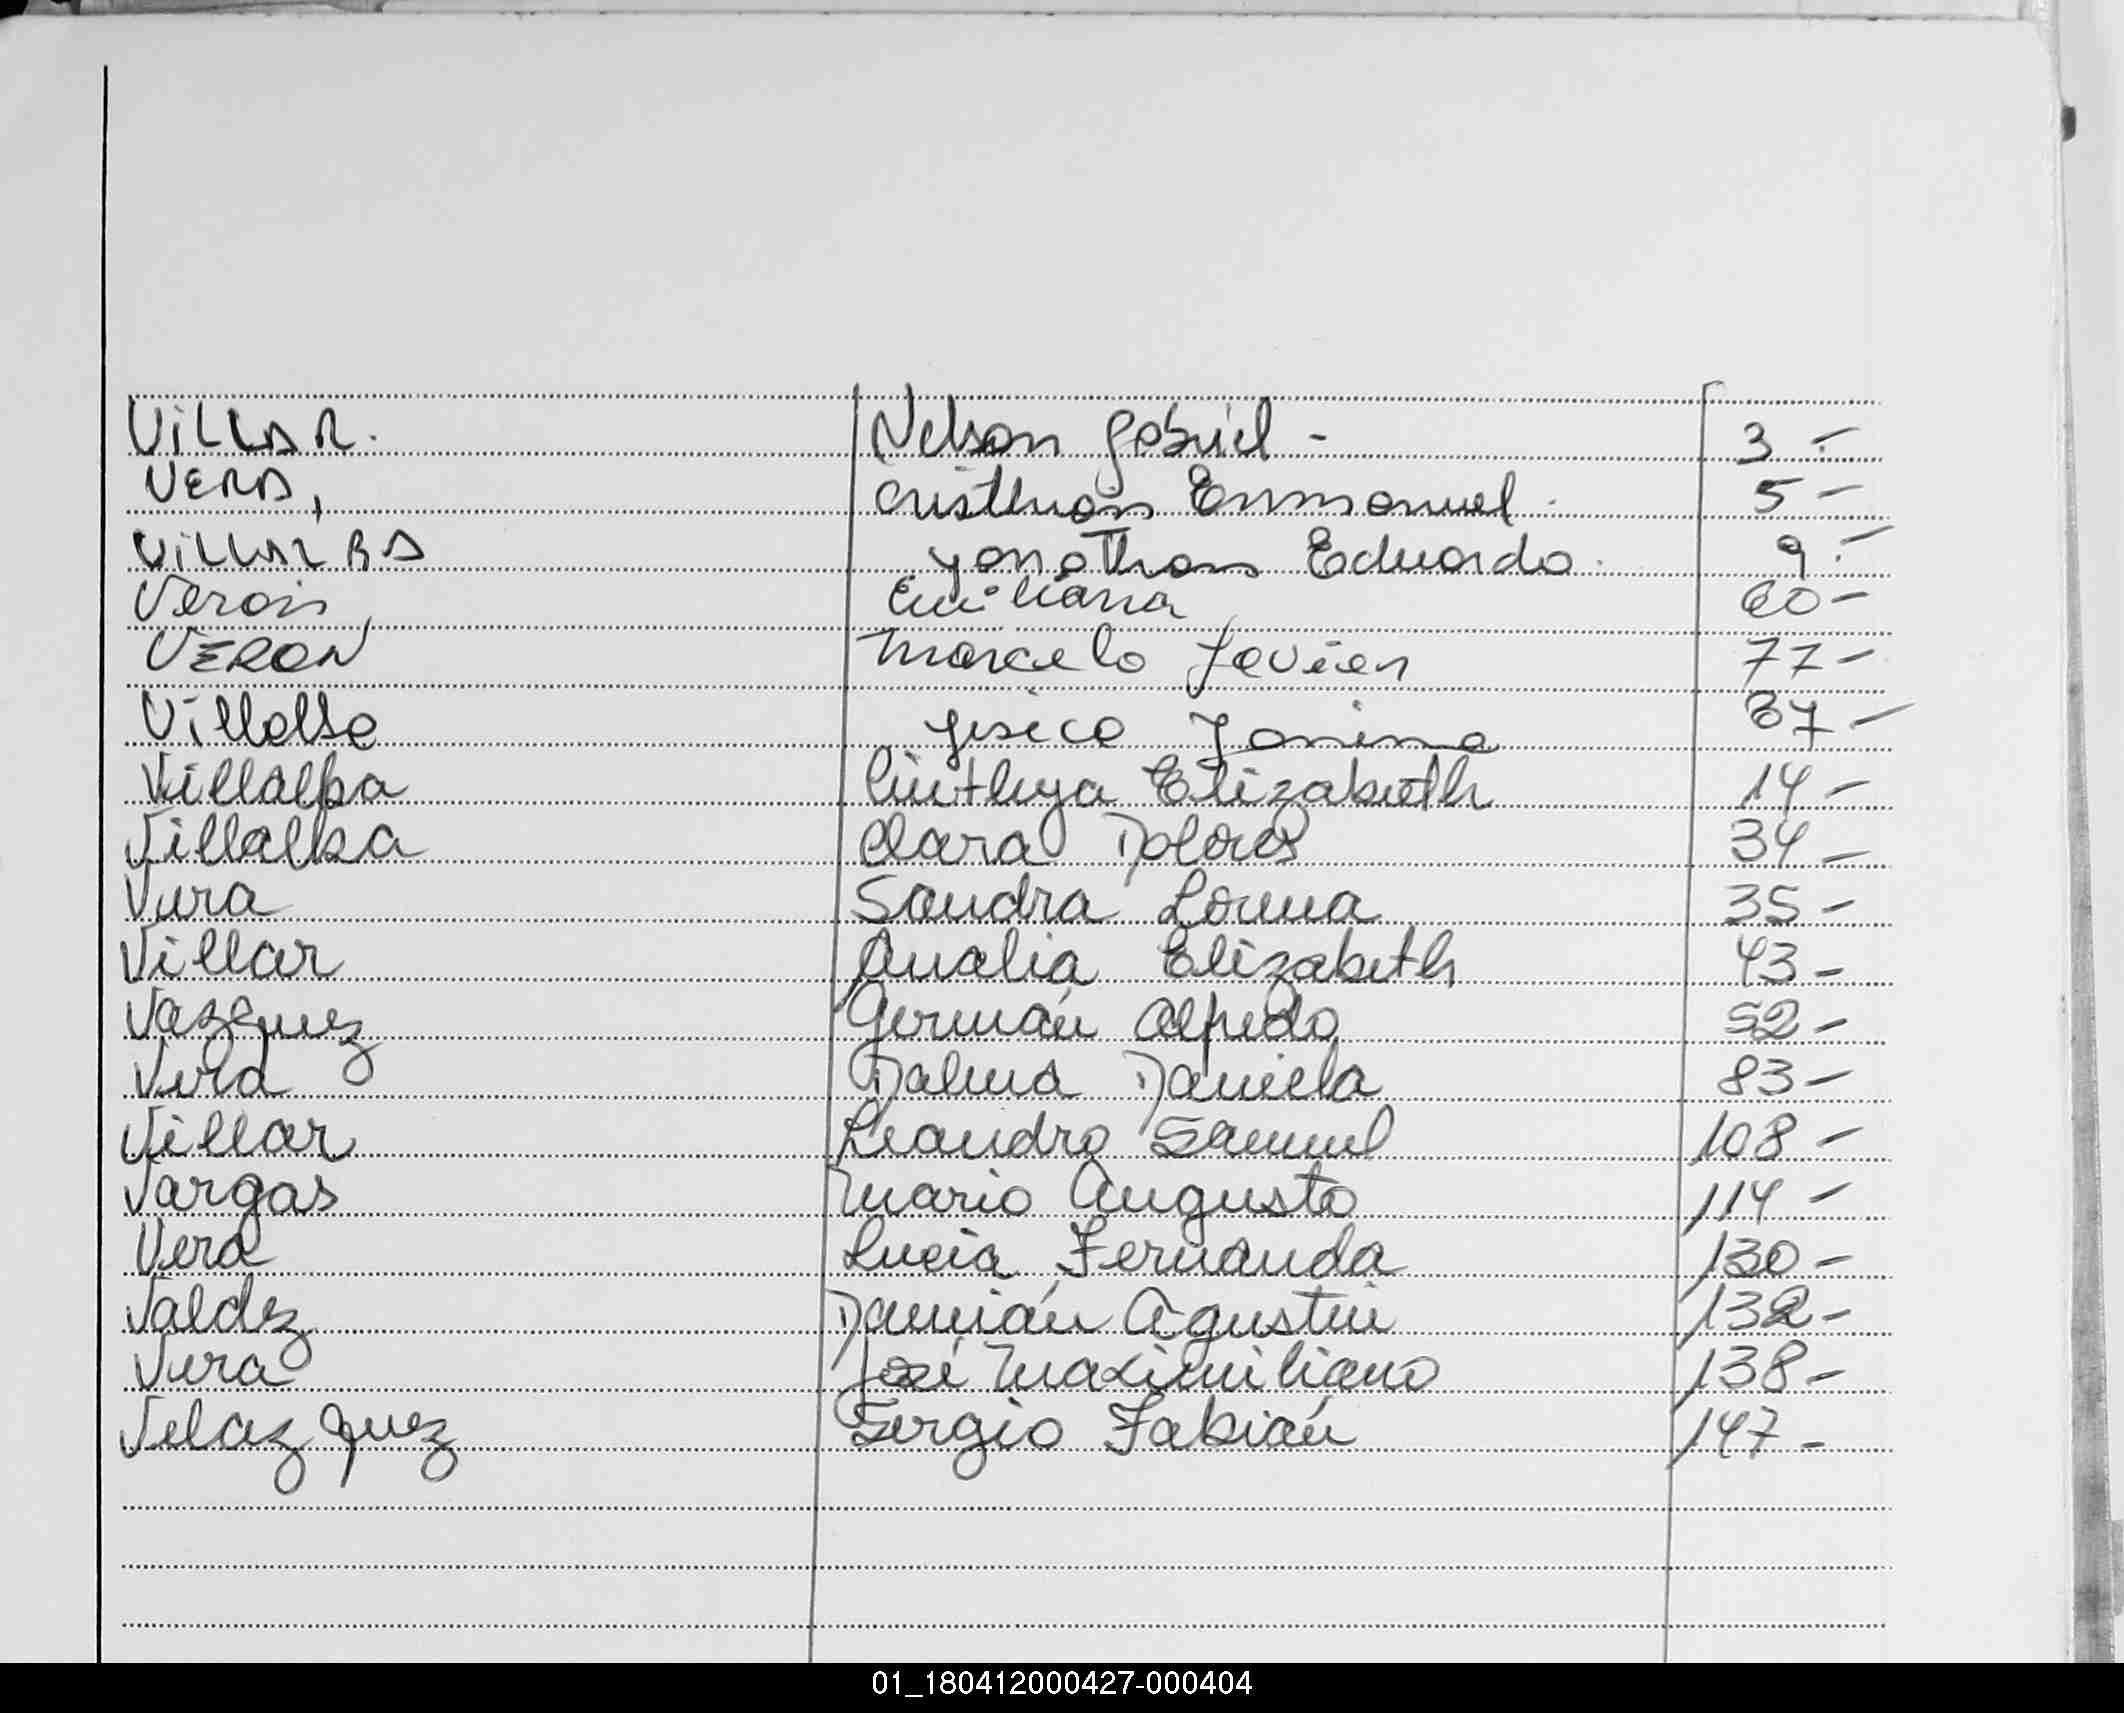 VILLAR. Nelson Gabriel - 3 -
VERA, Cristhian Emmanuel. 5 -
VILLALBA Yonathan Eduardo. 9 -
Verón, Emiliana 60 -
VERON Marcelo Javier 77 -
Villalba Yesica Yanina 37 -
Villalba Cinthya Elizabeth 14 -
Villalba Clara Dolores 34 -
Vera Sandra Lorena 35 -
Villar Analia Elizabeth 43 -
Vazquez Germán Alfredo 52 -
Vera Dalma Daniela 83 -
Villar Leandro Samuel 108 -
Vargas Mario Augusto 114 -
Vera Lucia Fernanda 130 -
Valdez Damián Agustin 132 -
Vera José Maximiliano 138 -
Velazquez Sergio Fabián 147 -
01_180412000427-000404